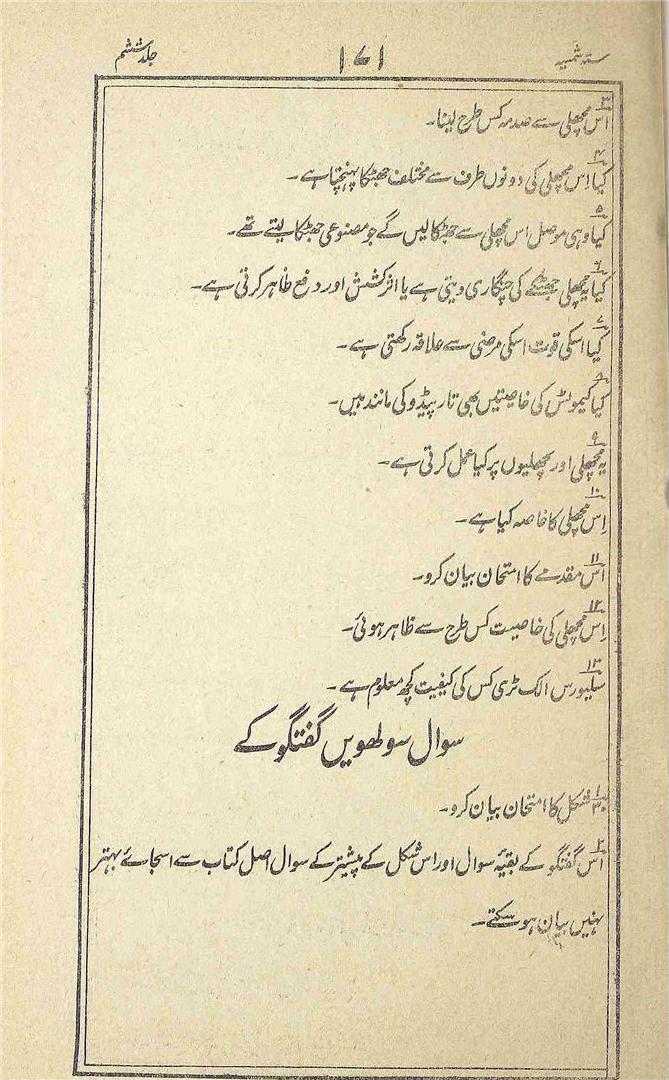 ستہ شمسیہ ۱۷۱ جلد ششم
۳ اس مچھلی سے صدمہ کس طرح لینا۔
۴ کیا اِس مچھلی کی دونوں طرف سے مختلف جھٹکا پہنچتا ہے۔
۵ کیا وہی موصل اس مچھلی سے جھٹکا لیں گے جو مصنوعی جھٹکا لیتے تھے۔
۶ کیا یہ مچھلی جھٹکے کی چنگاری دیتی ہے یا اثر کشش اور دفع ظاہر کرتی ہے۔
۷ کیا اسکی قوت اسکی مرضی سے علاقہ رکھتی ہے۔
۸ کیا گیمونٹس کی خاصیتیں بھی تارپیڈو کی مانند ہیں۔
۹ یہ مچھلی اور مچھلیوں پر کیا عمل کرتی ہے۔
۱۰ اِس مچھلی کا خاصہ کیا ہے۔
۱۱ اس مقدمے کا امتحان بیان کرو۔
۱۲ اِس مچھلی کی خاصیت کس طرح سے ظاہر ہوئی۔
۱۳ سلیورس الک ٹری کس کی کیفیت کچھ معلوم ہے۔
سوال سولھویں گفتگو کے
۱ ۳۰ شکل کا امتحان بیان کرو۔
۲ اس گفتگو کے بقیۂ سوال اور اس شکل کے پیشتر کے سوال اصل کتاب سے اسجاے بہتر
نہیں بیان ہوسکتے۔